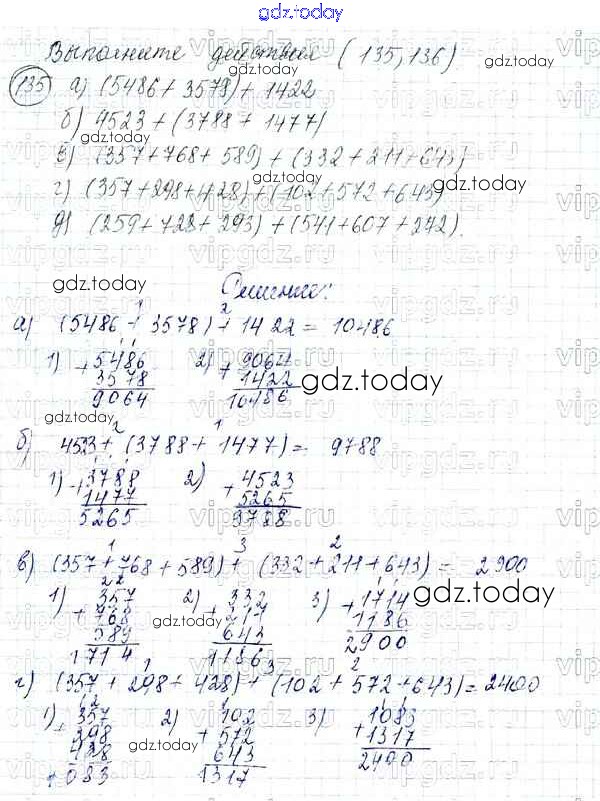 gdz.today
Выполните действия (135, 136)
135 а) (5486 + 3579) + 1422
б) 4523 + (3788 + 1477)
в) (357 + 768 + 589) + (332 + 211 + 643)
г) (357 + 298 + 428) + (102 + 572 + 643)
д) (259 + 728 + 293) + (541 + 607 + 242).
Решение:
а) (5486 + 3578) + 1422 = 10486
1) + 5486 2) + 9064
3578 1422
9064 10486
б) 4523 + (3788 + 1477) = 9788
1) + 3788 2) + 4523
1477 5265
5265 9788
в) (357 + 768 + 589) + (332 + 211 + 643) = 2900
1) + 357 2) + 332 3) + 1714
768 211 1186
589 643 2900
1714 1186
г) (357 + 298 + 428) + (102 + 572 + 643) = 2400
1) + 357 2) + 102 3) + 1083
298 572 1317
428 643 2400
1083 1317
gdz.today
vipgdz.ru